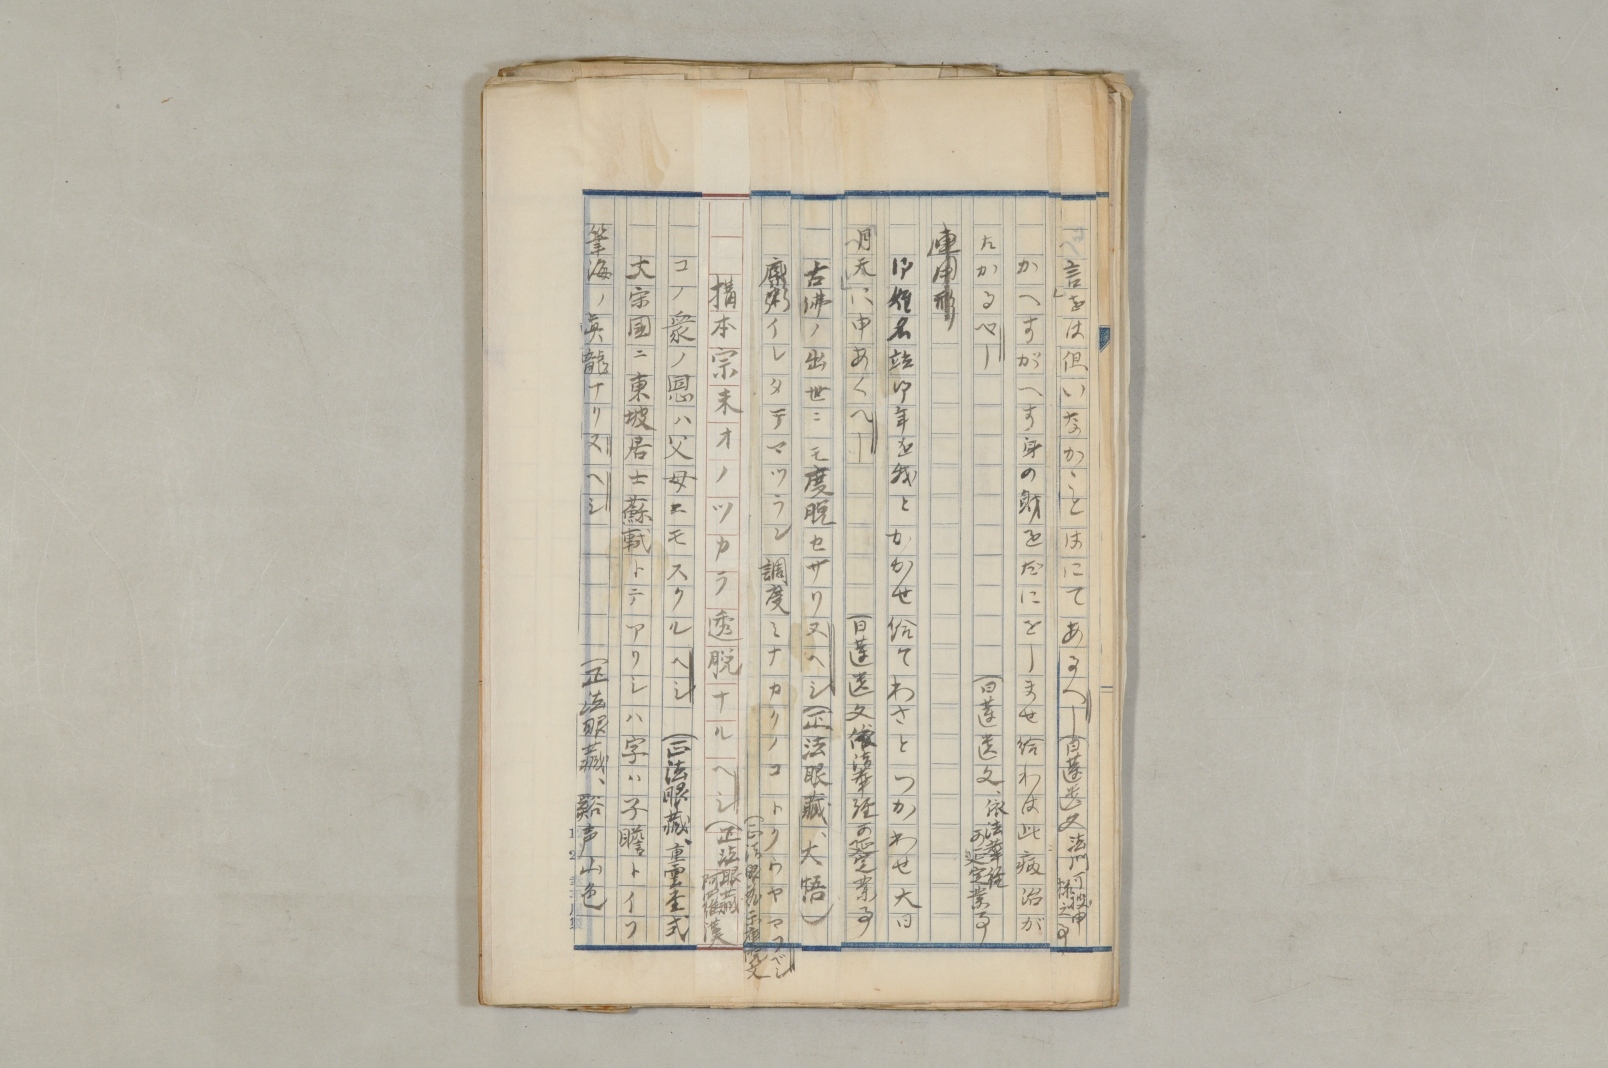 言をは但いなかことはにてあるへし(日蓮遺文 法門可被申様之事
かへすがへす身の財をだにをしませ給わは此病治が
たかるべし (日蓮遺文、依法華経可延定業事
連用形
御姓名並御年を我とかかせ給てわさとつかわせ大日
月天に申あくへし (日蓮遺文依法華経可延定業事
古佛ノ出世ニモ度脱セサリヌヘシ(正法眼蔵、大悟)
廩粥イレタテマツラン調度ミナカクノコトクウヤマフベシ(正法眼蔵示庫院文
搆本宗末オノツカラ透脱ナルヘシ(正法眼蔵阿羅漢
コノ衆ノ恩ハ父母ニモスクルヘシ (正法眼蔵、重雲堂式
大宋国ニ東坡居士蘇軾トテアリシハ字ハ子瞻トイフ
筆海ノ真龍ナリヌヘシ (正法眼蔵、谿声山色